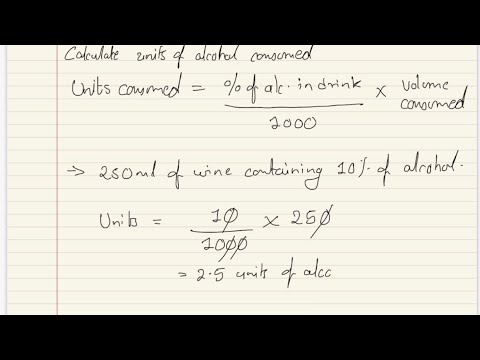 Calculate units of alcohol consumed
Units consumed = % of alc. in drink / 1000 × volume consumed
→ 250ml of wine containing 10% of alcohol.
Units = 10 / 1000 × 250
= 2.5 units of alcc